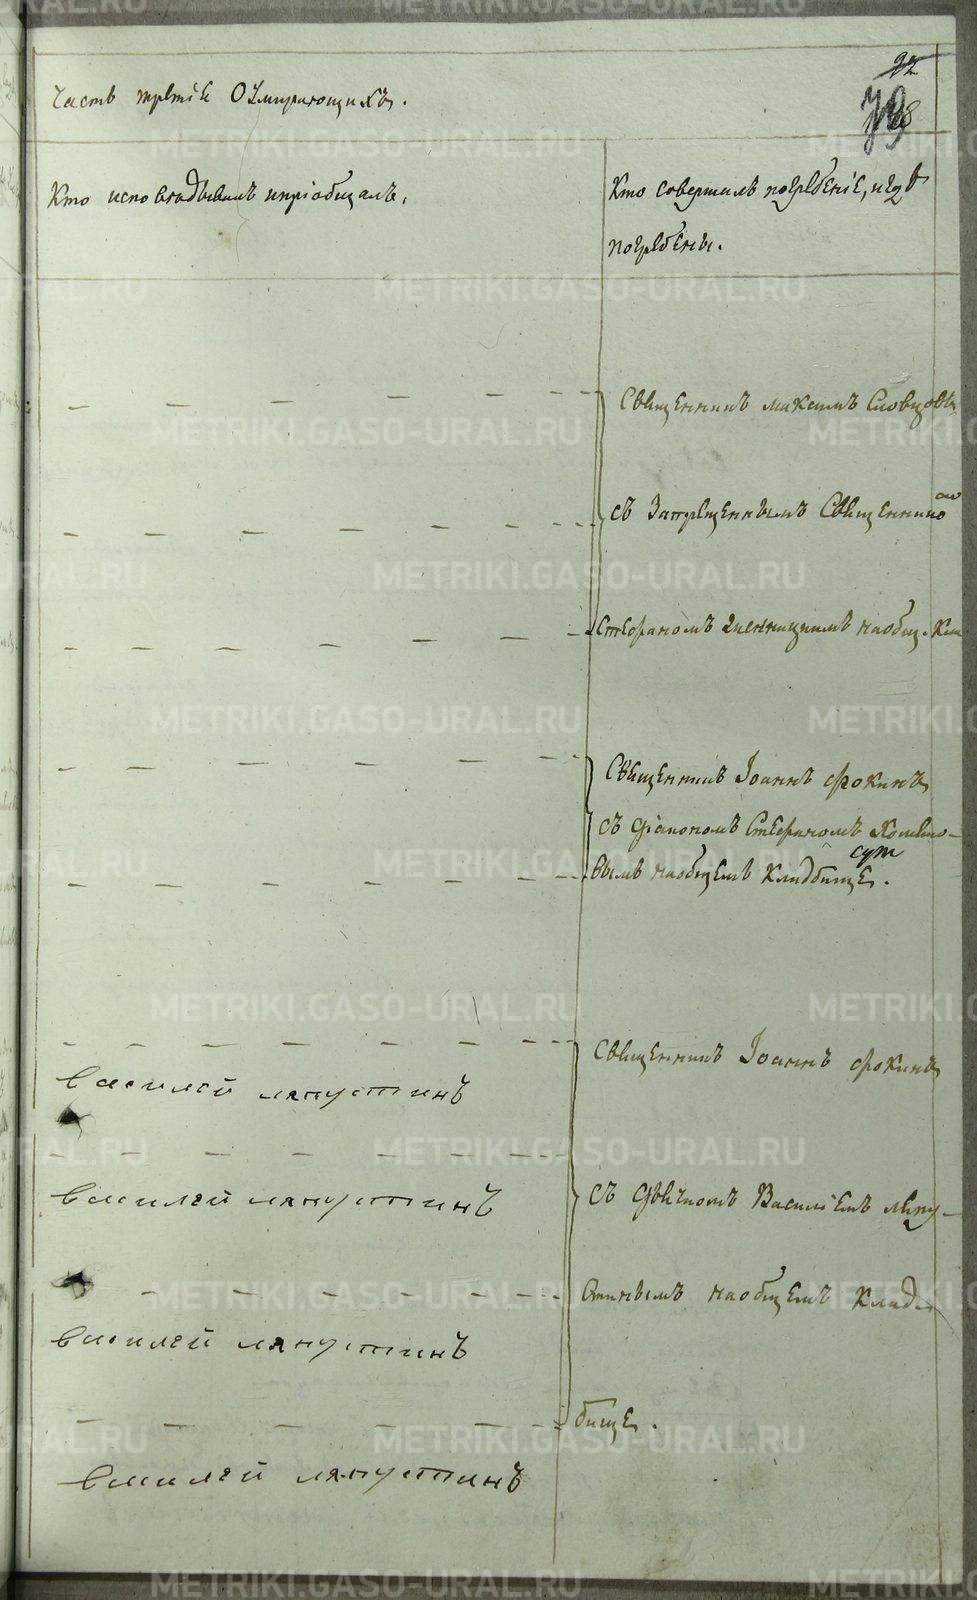 92
Часть третіѧ О умирающихъ.
Кто исповѣдывалъ ипріобщалъ,
Кто совершалъ погребеніе, игдѣ
погребены.
Священникъ максимъ Словцовъ
съ Запрещеннымъ Священнико
Стефаномъ наобщ. Кла
Священникъ Іоаннъ фокинъ
съ діакономъ Стефаномъ
вымъ наобщемъ Кладбище.
Священникъ Іоаннъ фокинъ
василей ляпустинъ
съ дьячкомъ Василіемъ ляпу-
василей ляпустинъ
стинымъ наобщемъ Клад-
василей ляпустинъ
бище.
василей ляпустинъ
METRIKI.GASO-URAL.RU